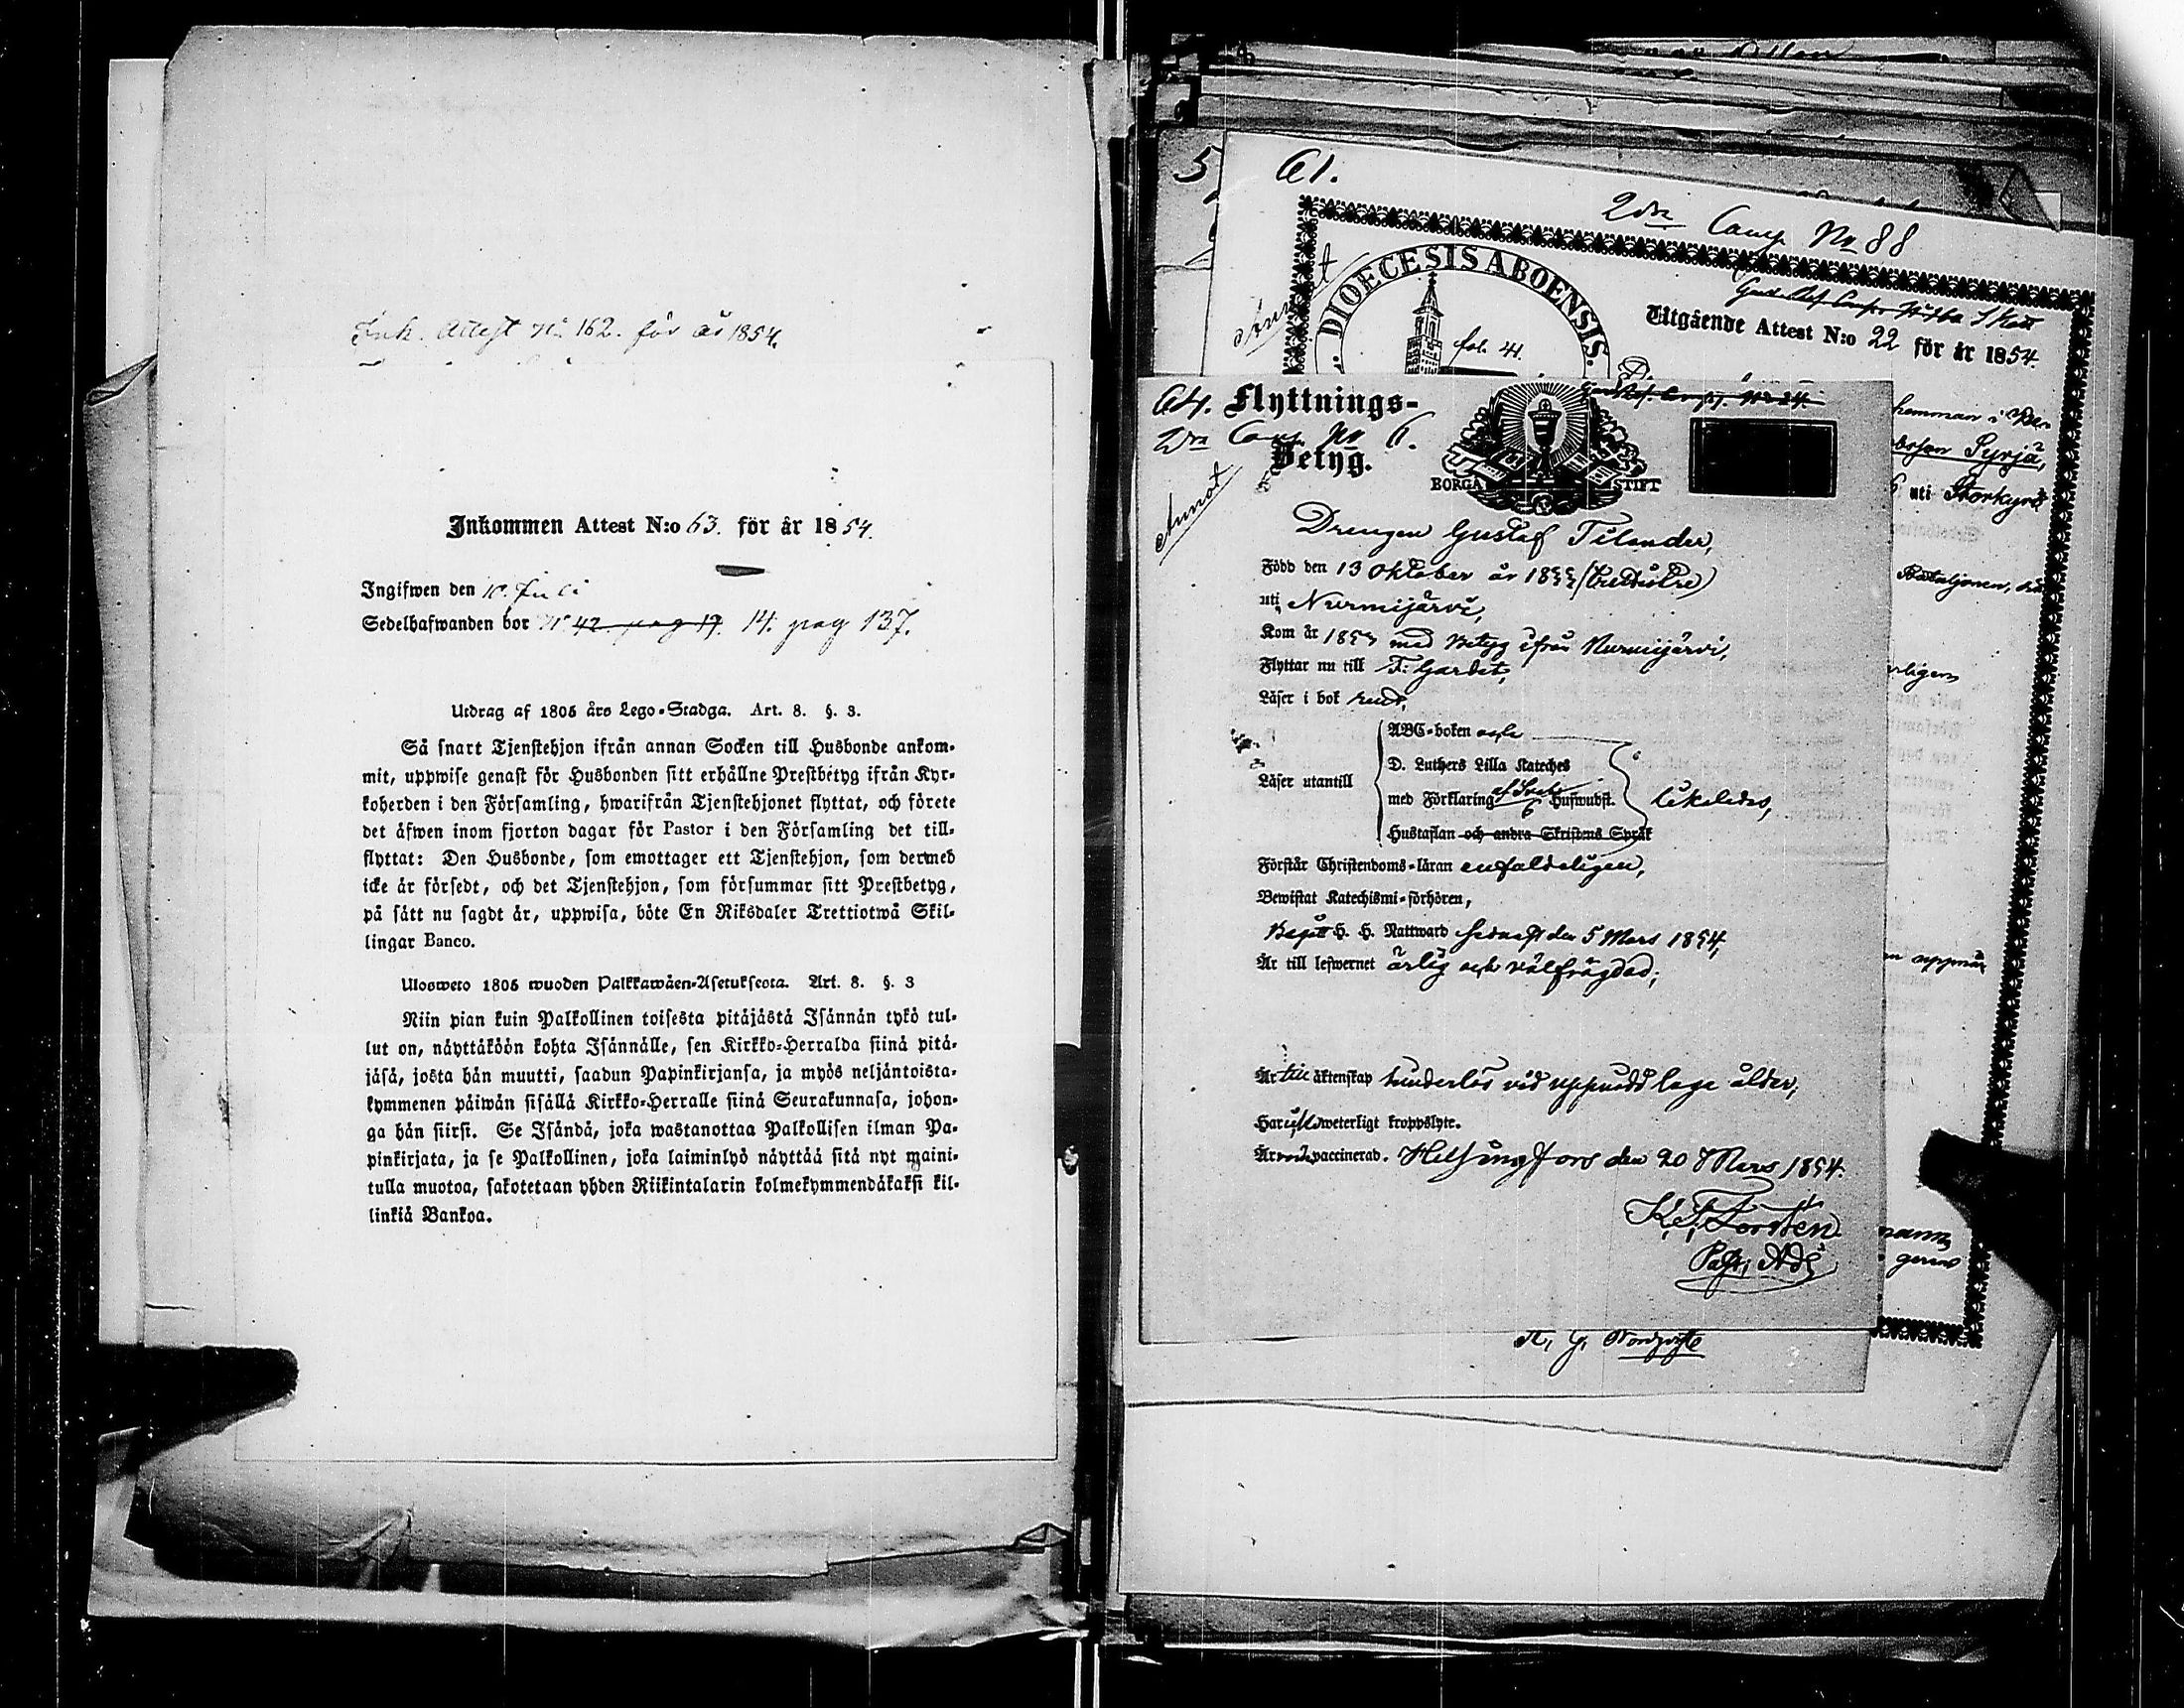 Ink. Attest No 162. för år 1854.
Inkommen Attest N:o 63. för år 1854.
Ingifwen den 10. Juli
Sedelhafwanden bor No 42. pag 17. 14. pag 137.
Utdrag af 1805 års Lego-Stadga. Art. 8. §. 3.
Så snart Tjenstehjon ifrån annan Socken till Husbonde ankom-
mit, uppwise genast för Husbonden sitt erhållne Prestbetyg ifrån Kyr-
koherden i den Församling, hwarifrån Tjenstehjonet flyttat, och förete
det äfwen inom fjorton dagar för Pastor i den Församling det till-
flyttat: Den Husbonde, som emottager ett Tjenstehjon, som dermed
icke är försedt, och det Tjenstehjon, som försummar sitt Prestbetyg,
på sätt nu sagdt är, uppwisa, böte En Riksdaler Trettiotwå Skil-
lingar Banco.
Ulosweto 1805 wuoden Palkkawäen-Asetuksesta. Art. 8. §. 3
Niin pian kuin Palkollinen toisesta pitäjästä Isännän tykö tul-
lut on, näyttäköön kohta Isännälle, sen Kirkko-Herralda siinä pitä-
jäsä, josta hän muutti, saadun Papinkirjansa, ja myös neljäntoista-
kymmenen päiwän sisällä Kirkko-Herralle siinä Seurakunnasa, johon-
ga hän siirsi. Se Isändä, joka wastanottaa Palkollisen ilman Pa-
pinkirjata, ja se Palkollinen, joka laiminlyö näyttää sitä nyt maini-
tulla muotoa, sakotetaan yhden Riikintalarin kolmekymmendäkaksi kil-
linkiä Bankoa.
61.
2dra Comp. No 88
DIOECESIS ABOENSIS.
fol. 41.
Utgående Attest N:o 22 för år 1854.
hemman i
Syrjä,
uti Storkyro
Bataljonen,
64. Flyttnings-
2dra Comp. No 6.
Betyg.
Annot
BORGÅ STIFT
Drengen Gustaf Tilander,
Född den 13 Oktober år 1833 (Tredivtre)
uti Nurmijärvi,
Kom år 1853 med Betyg ifrån Nurmijärvi,
Flyttar nu till F: Gardet,
Läser i bok rent,
Läser utantill
ABC-boken och
D. Luthers Lilla Kateches
med Förklaring af Svebi
6 Huswudst.
Hustaflan och andra Skriftens Språk
likaledes,
Förstår Christendoms-läran enfaldeligen,
Bewistat Katechismi-förhören,
Begått H. H. Nattward sednast den 5 Mars 1854,
Är till lefwernet ärlig och välfrägdad;
Är till äktenskap hinderlös vid uppnådd laga ålder,
Har icke weterligt kroppslyte.
Är vaccinerad. Helsingfors den 20 Mars 1854.
K. F. Forstén
Past. Adj.